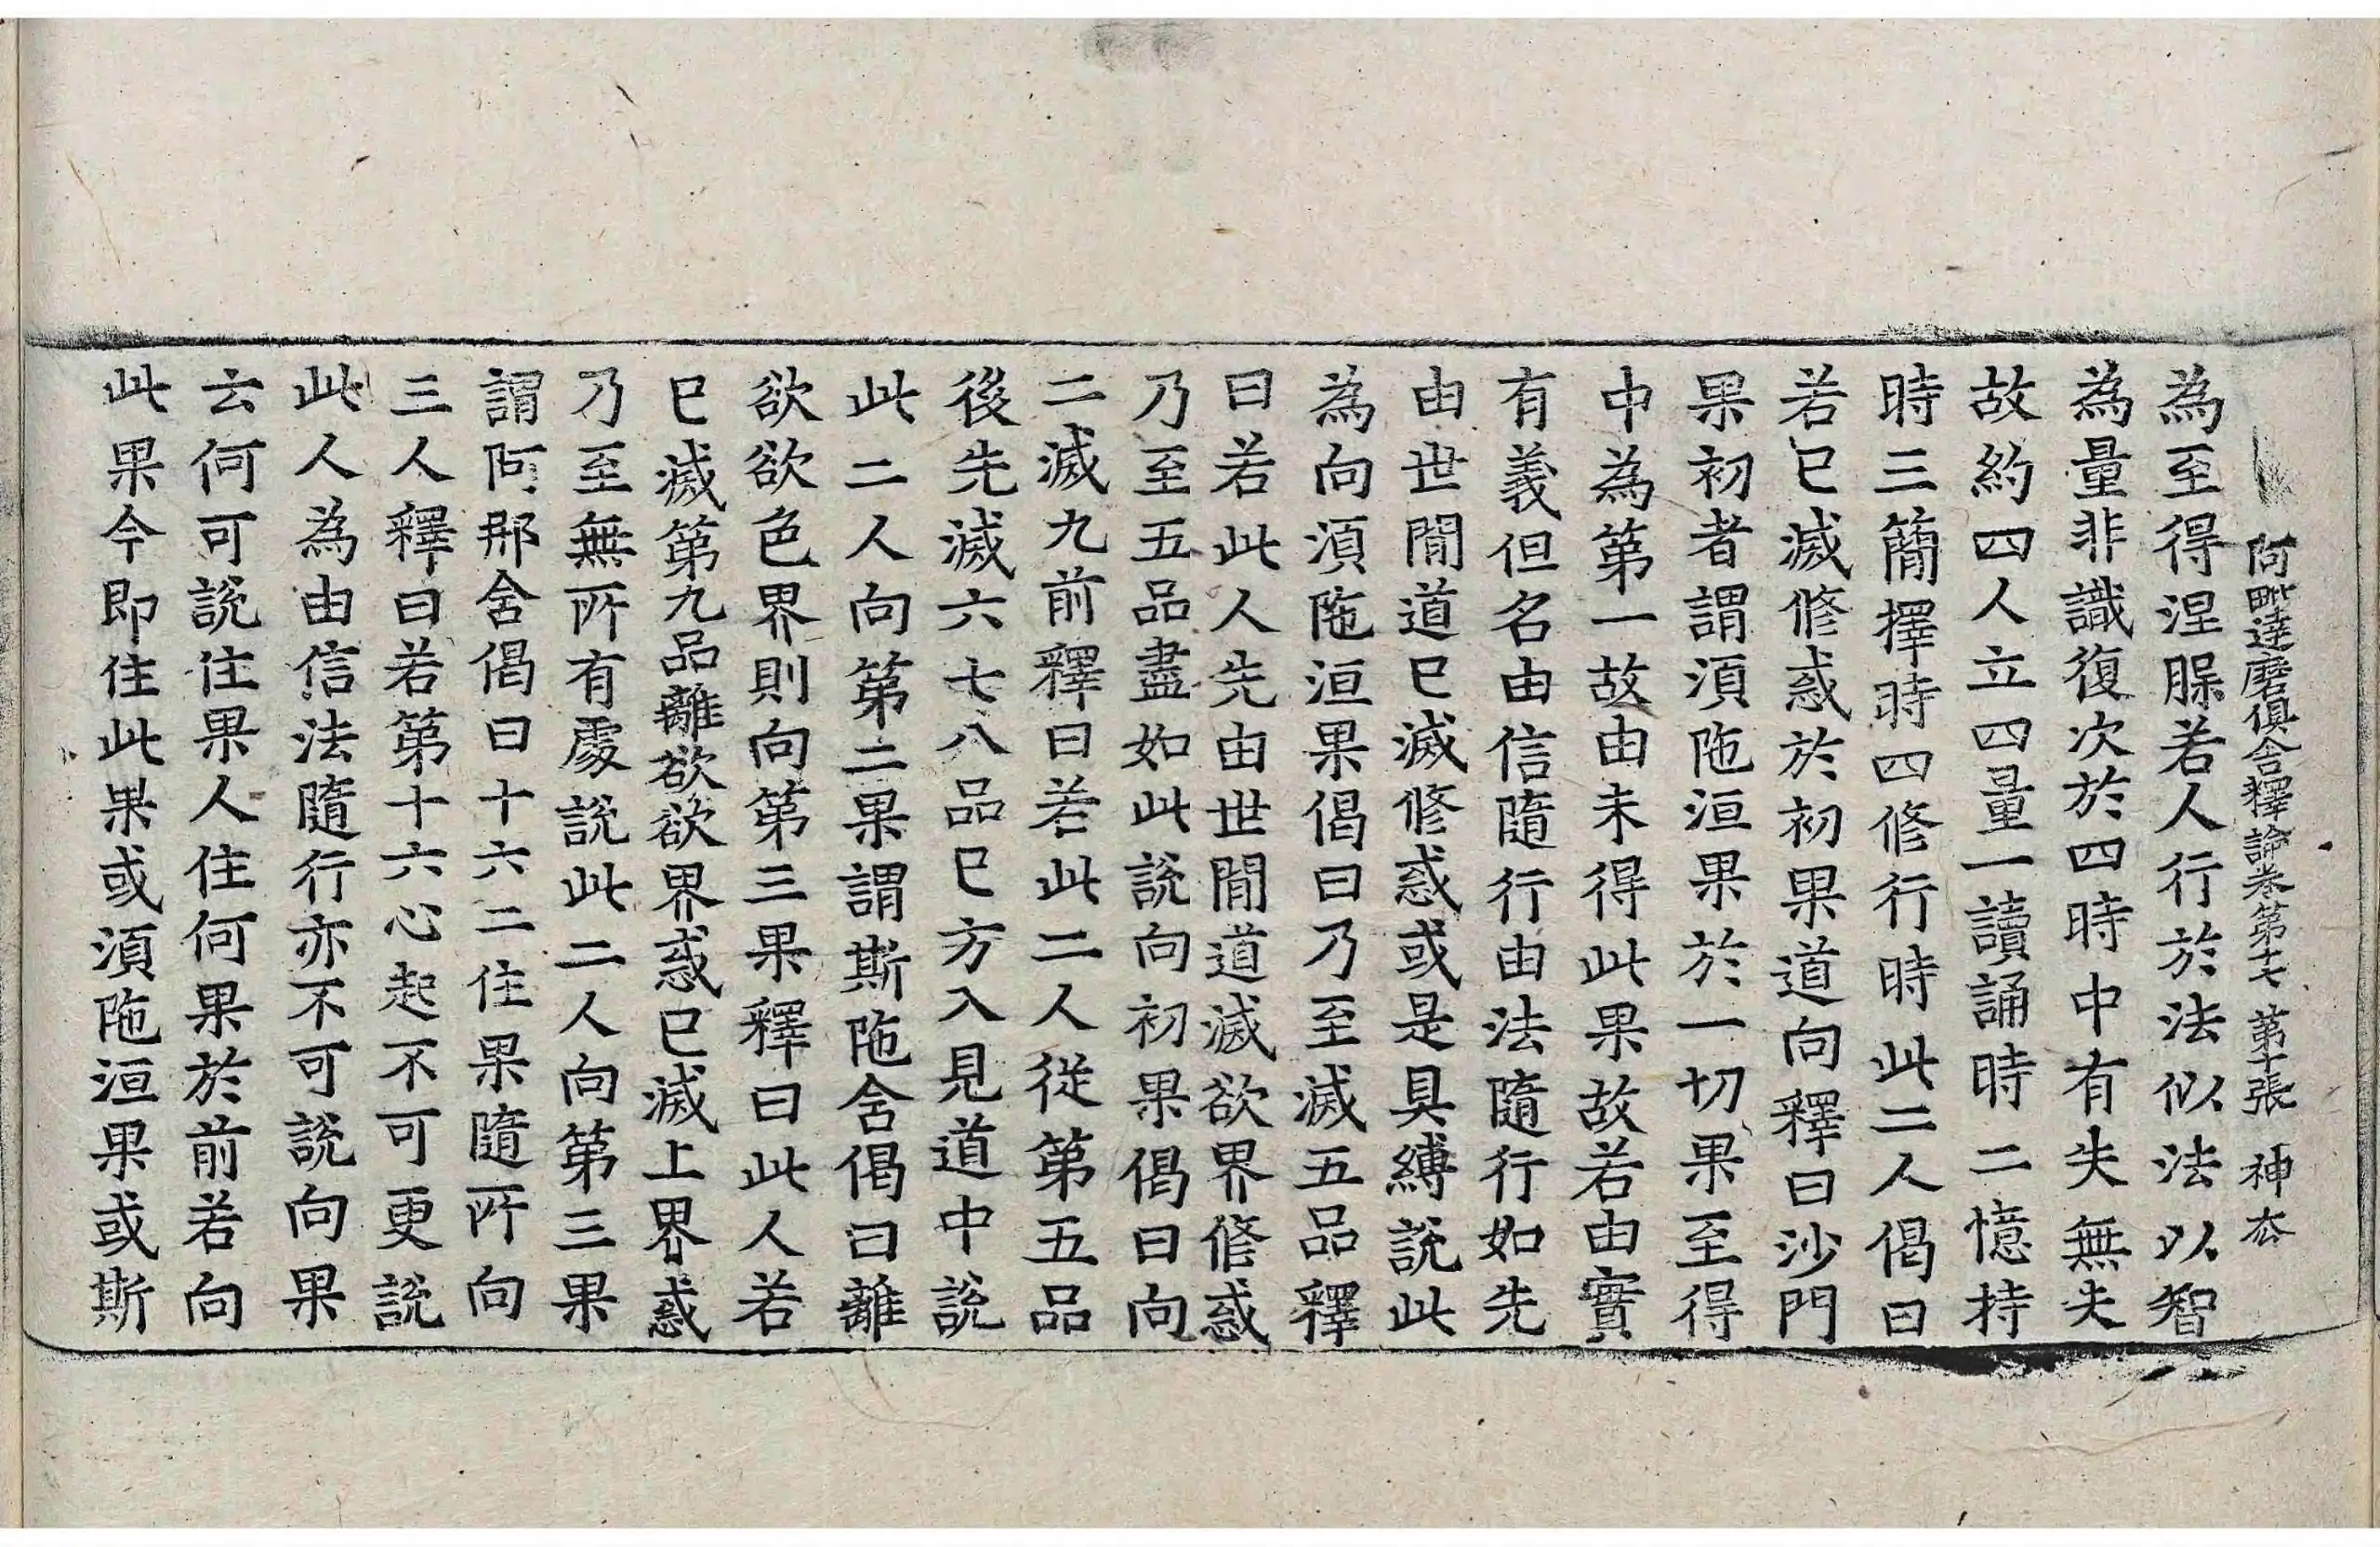 阿毗達磨俱舍釋論卷第十七 第十張 神
為至得涅脲若人行於法似法以智
為量非識復次於四時中有失無失
故約四人立四量一讀誦時二憶持
時三簡擇時四修行時此二人偈曰
若已滅修惑於初果道向釋曰沙門
果初者謂須陁洹果於一切果至得
中為第一故由未得此果故若由實
有義但名由信隨行由法隨行如先
由世間道已滅修惑或是具縛說此
為向須陁洹果偈曰乃至滅五品釋
曰若此人先由世間道滅欲界修惑
乃至五品盡如此說向初果偈曰向
二滅九前釋曰若此二人從第五品
後先滅六七八品已方入見道中說
此二人向第二果謂斯陁舍偈曰離
欲欲色界則向第三果釋曰此人若
已滅第九品離欲欲界惑已滅上界惑
乃至無所有處說此二人向第三果
謂阿那舍偈曰十六二住果隨所向
三人釋曰若第十六心起不可更說
此人為由信法隨行亦不可說向果
云何可說住果人住何果於前若向
此果今即住此果或須陁洹果或斯